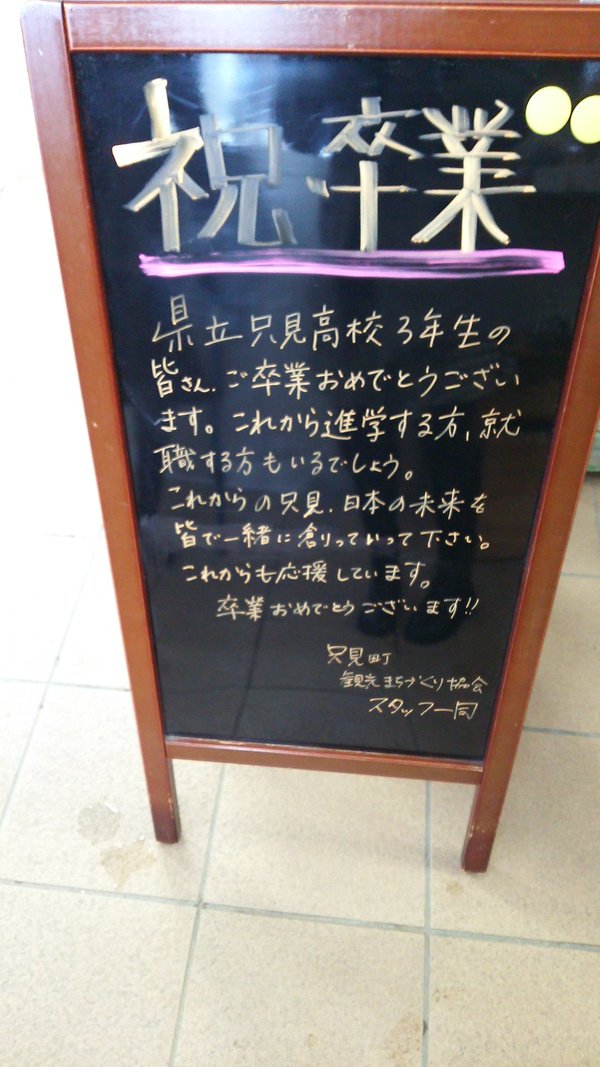 祝.卒業
県立只見高校3年生の
皆さん.ご卒業おめでとうござい
ます。これから進学する方、就
職する方もいるでしょう。
これからの只見.日本の未来を
皆で一緒に創っていって下さい。
これからも応援しています。
卒業おめでとうございます!!
只見町
観光まちづくり協会
スタッフ一同